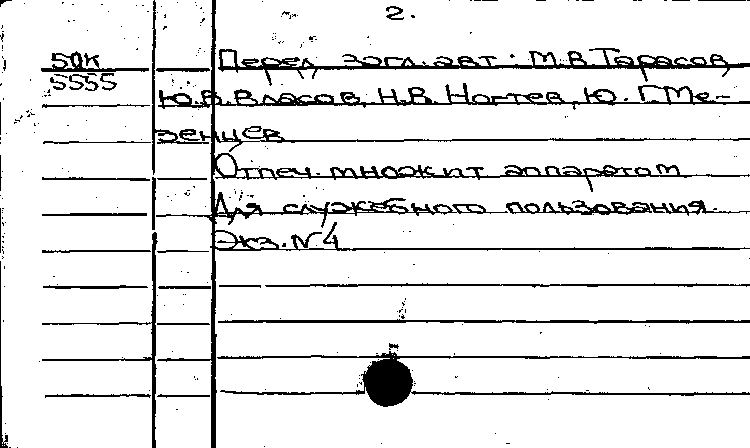 2.
50к Перед загл. авт: М.В.Тарасов,
5555 Ю.В.Власов, Н.В. Ногтев, Ю.Г.Ме-
зенцев
Отпеч. множит аппаратом
Для служебного пользования.
Экз. №4